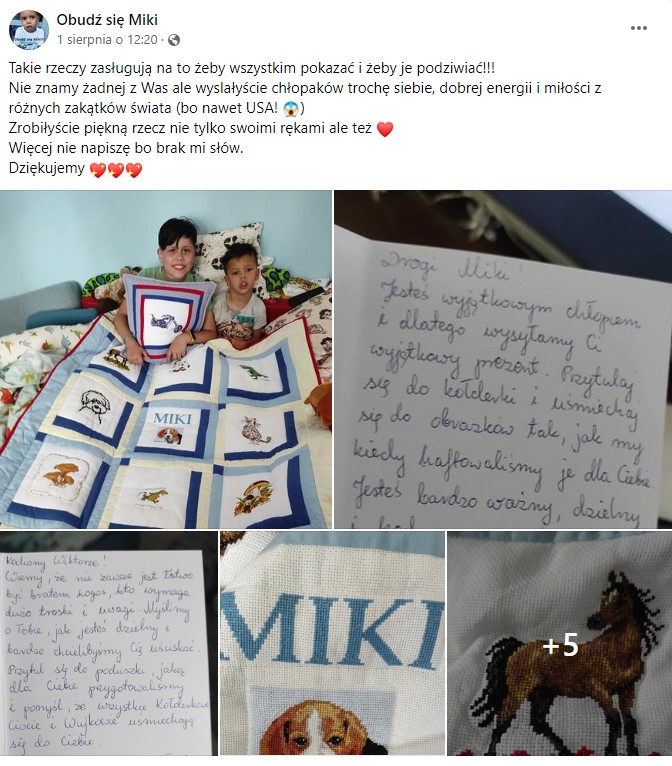 Obudź się Miki
1 sierpnia o 12:20 ·
Takie rzeczy zasługują na to żeby wszystkim pokazać i żeby je podziwiać!!!
Nie znamy żadnej z Was ale wyslałyście chłopaków trochę siebie, dobrej energii i miłości z
różnych zakątków świata (bo nawet USA! 😱)
Zrobiłyście piękną rzecz nie tylko swoimi rękami ale też ❤️
Więcej nie napiszę bo brak mi słów.
Dziękujemy 💖💖💖
MIKI
Drogi Miki!
Jesteś wyjątkowym chłopcem
i dlatego wysyłamy Ci
wyjątkowy prezent. Przytulaj
się do kołderki i uśmiechaj
się do obrazków tak, jak my
kiedy haftowaliśmy je dla Ciebie.
Jesteś bardzo ważny, dzielny
i
Kochany Wiktorze!
Wiemy, że nie zawsze jest łatwo
być bratem kogoś, kto wymaga
dużo troski i uwagi. Myślimy
o Tobie, jak jesteś dzielny i
bardzo chcielibyśmy Cię uściskać.
Przytul się do poduszki, jaką
dla Ciebie przygotowaliśmy
i pomyśl, że wszystkie Kołderkowe
Ciocie i Wujkowie uśmiechają
się do Ciebie.
MIKI
+5